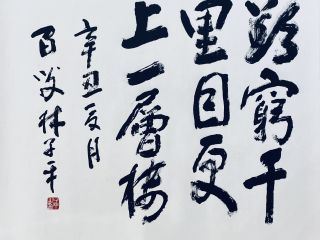 欲窮千
里目更
上一層樓
辛丑夏月
林子平